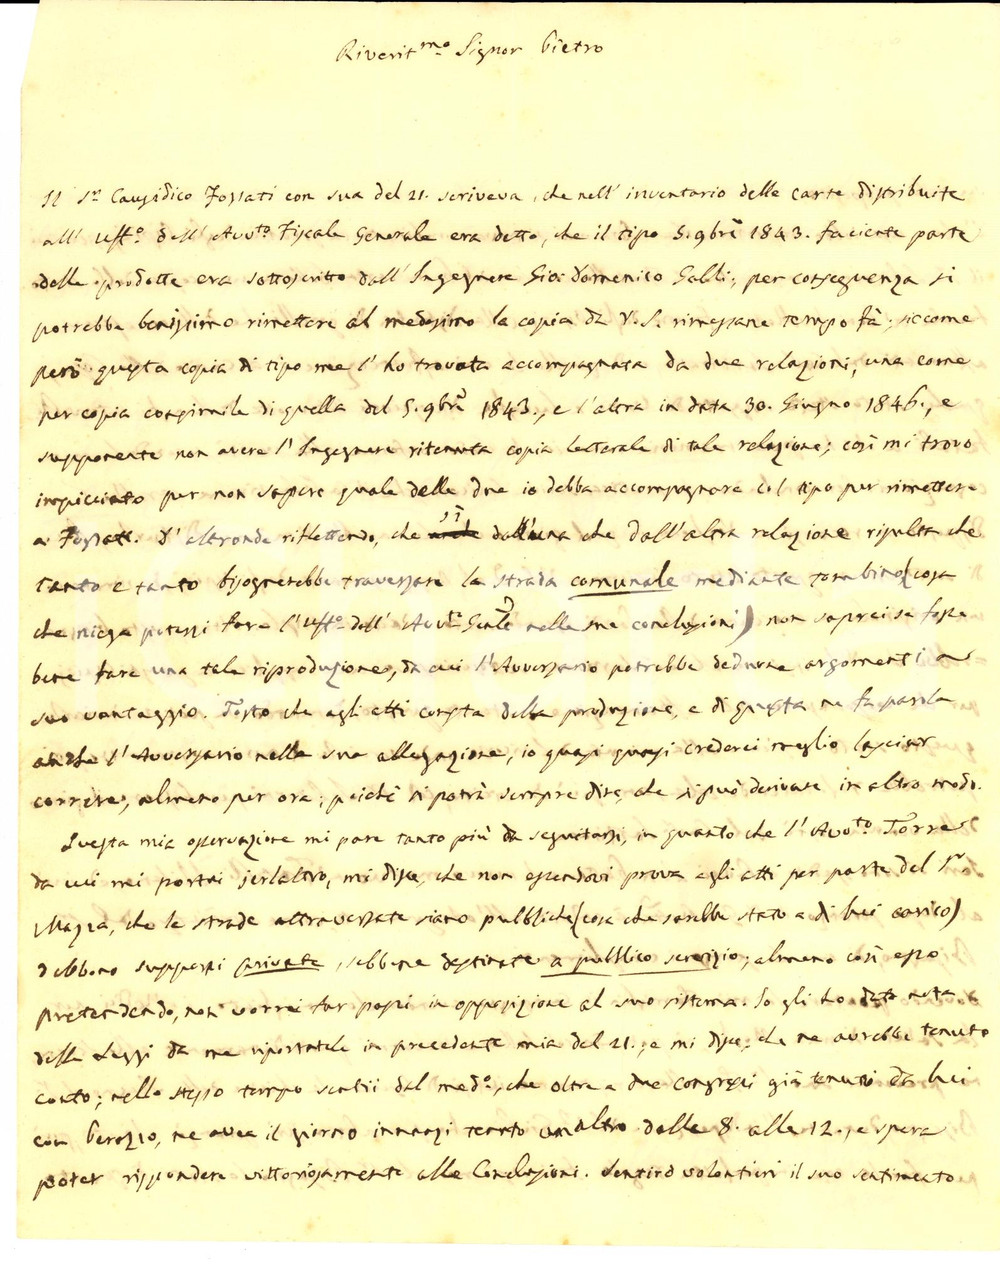 Riverit.mo Signor Pietro
Il S.r Causidico Fossati con sua del 21. scriveva, che nell' inventario delle carte distribuite
all' Uff.o dell' Avv.to Fiscale Generale era detto, che il tipo 5. 9bre 1843. faciente parte
delle prodotte era sottoscritto dall' Ingegnere Gio: Domenico Galli; per conseguenza si
potrebbe benissimo rimettere al medesimo la copia da V. S. rimessane tempo fà; siccome
però questa copia di tipo me l' ho trovata accompagnata da due relazioni, una come
per copia consimile di quella del 5. 9bre 1843., e l'altra in data 30. Giugno 1846., e
supponente non avere l' Ingegnere ritenuta copia letterale di tale relazione; così mi trovo
impicciato per non sapere quale delle due io debba accompagnare col tipo per rimettere
a Fossati. D' altronde riflettendo, che sì dall'una che dall'altra relazione risulta che
tanto e tanto bisognerebbe traversare la strada comunale mediante tombino (cosa
che niega potersi fare l' Uff.o dell' Avv.to Gen.le nelle sue conclusioni) non saprei se fosse
bene fare una tale riproduzione, da cui l'Avversario potrebbe dedurne argomenti a
suo vantaggio. Tosto che agli atti consta della produzione, e di questa ne fa parola
anche l'Avversario nella sua allegazione, io quasi quasi crederei meglio lasciar
correre, almeno per ora; poichè si potrà sempre dire, che si può derivare in altro modo.
Questa mia osservazione mi pare tanto più da seguitarsi, in quanto che l' Avv.to Torre
da cui mi portai jerlaltro, mi disse, che non essendovi prova agli atti per parte del S.r
Mazza, che le strade attraversate siano pubbliche (cosa che sarebbe stato a di lui carico)
debbono supporsi private, sebbene destinate a pubblico servizio; almeno così esso
pretendendo, non vorrei far passi in opposizione al suo sistema. Io gli ho dato nota
delle Leggi da me riportatele in precedente mia del 21., e mi disse, che ne avrebbe tenuto
conto; nello stesso tempo sentii dal med.o, che oltre a due congressi già tenuti da lui
con Perozzo, ne avea il giorno innanzi tenuto un altro dalle 8. alle 12., e spera
poter rispondere vittoriosamente alle Conclusioni. Sentirò volontieri il suo sentimento